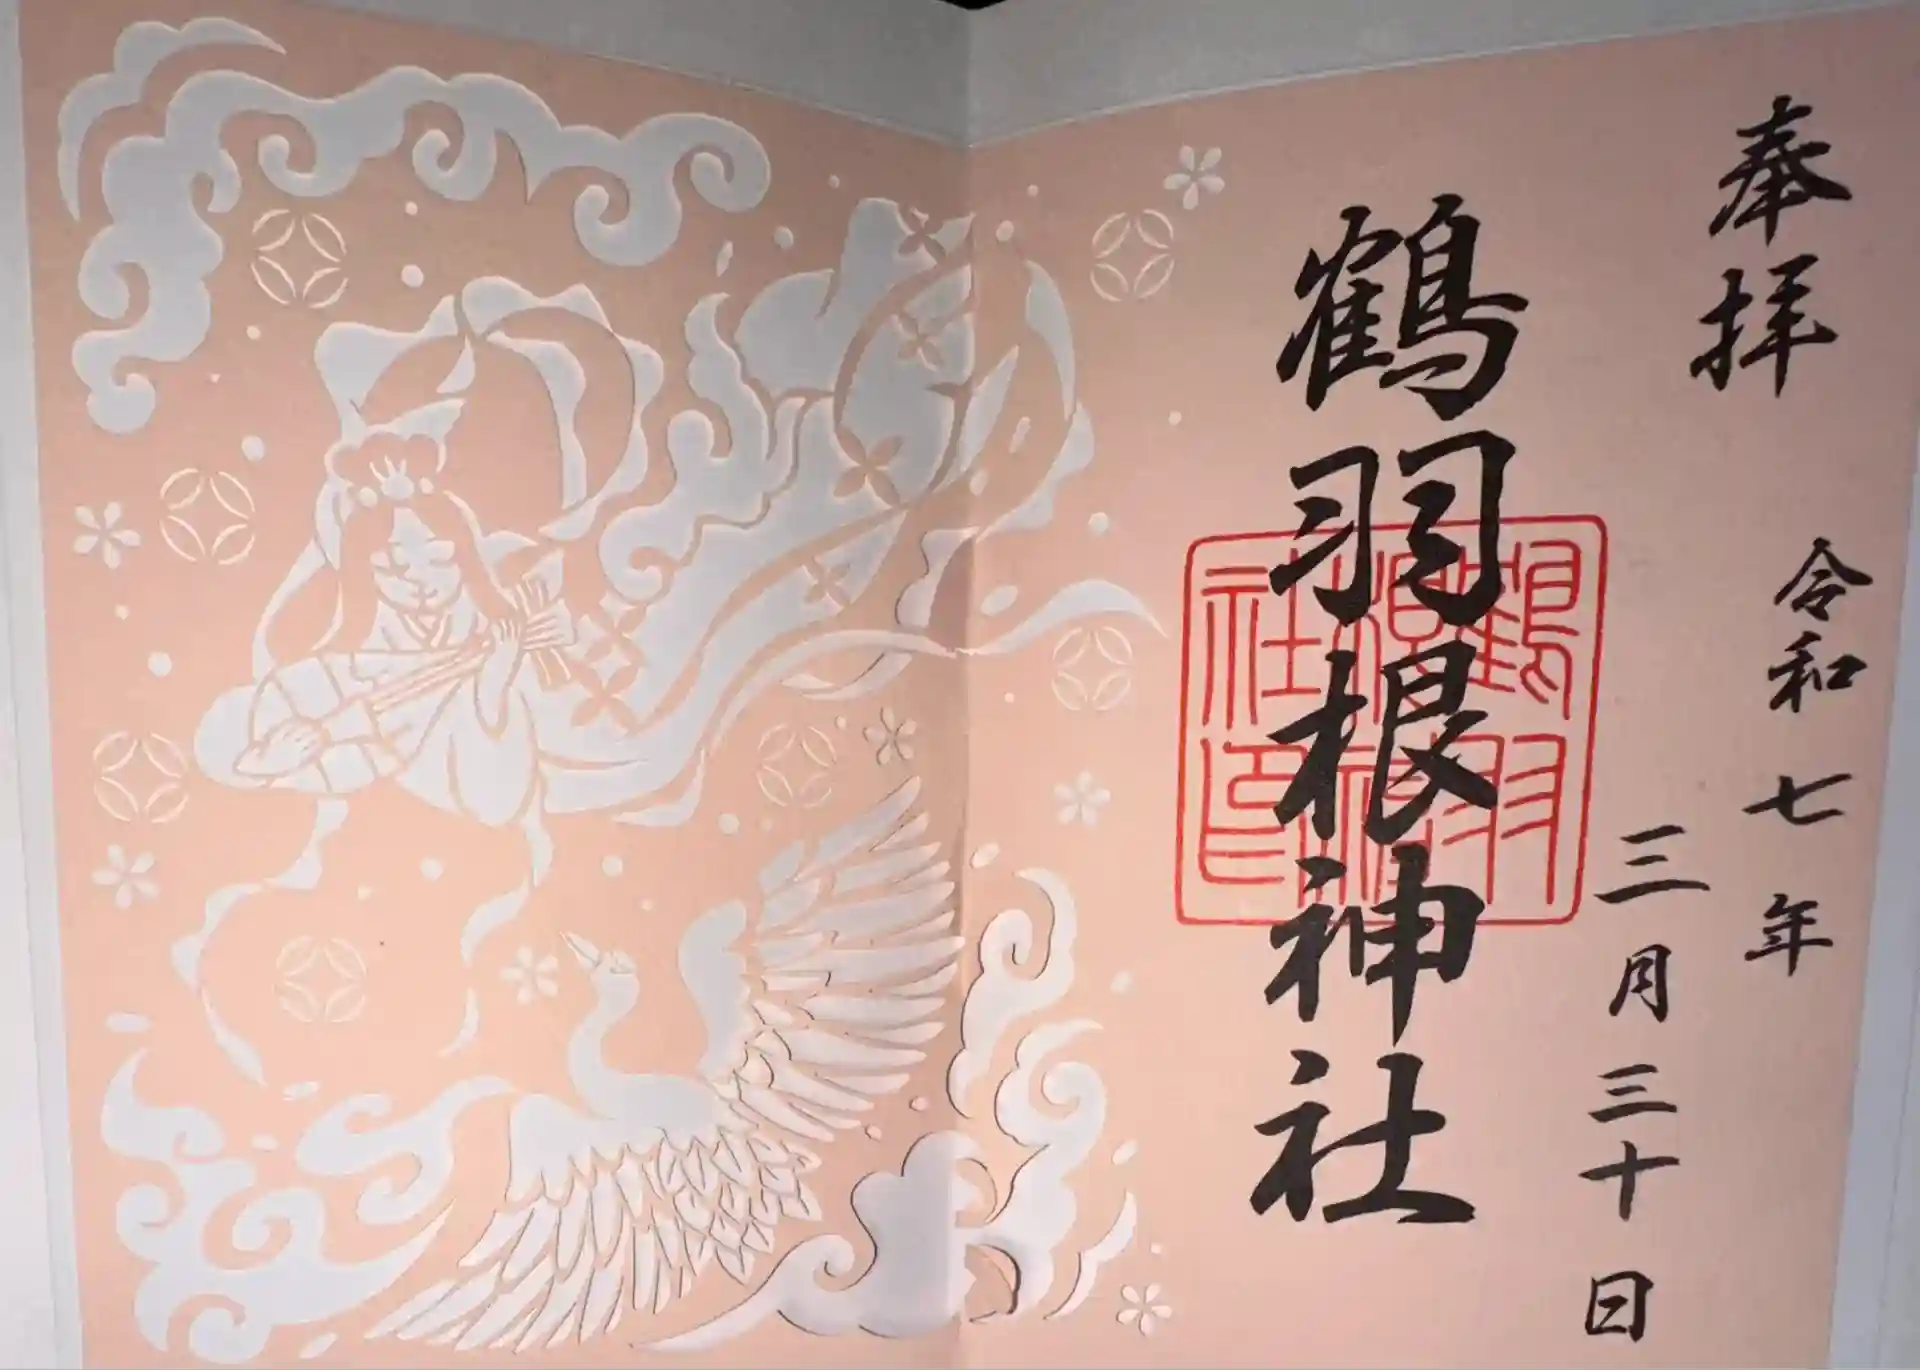 奉拝
令和七年
三月三十日
鶴羽根神社
鶴羽
根神
社印